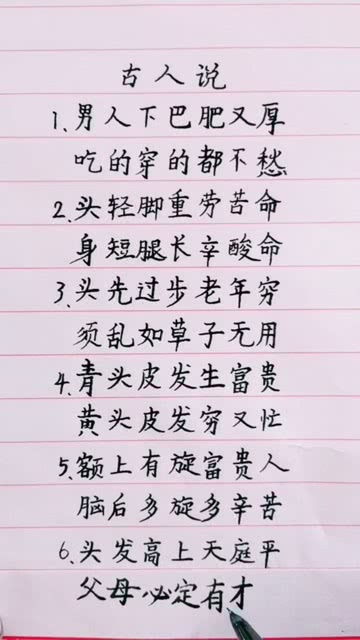 古人说
1、男人下巴肥又厚
吃的穿的都不愁
2、头轻脚重劳苦命
身短腿长辛酸命
3、头先过步老年穷
须乱如草子无用
4、青头皮发生富贵
黄头皮发穷又忙
5、额上有旋富贵人
脑后多旋多辛苦
6、头发高上天庭平
父母必定有才